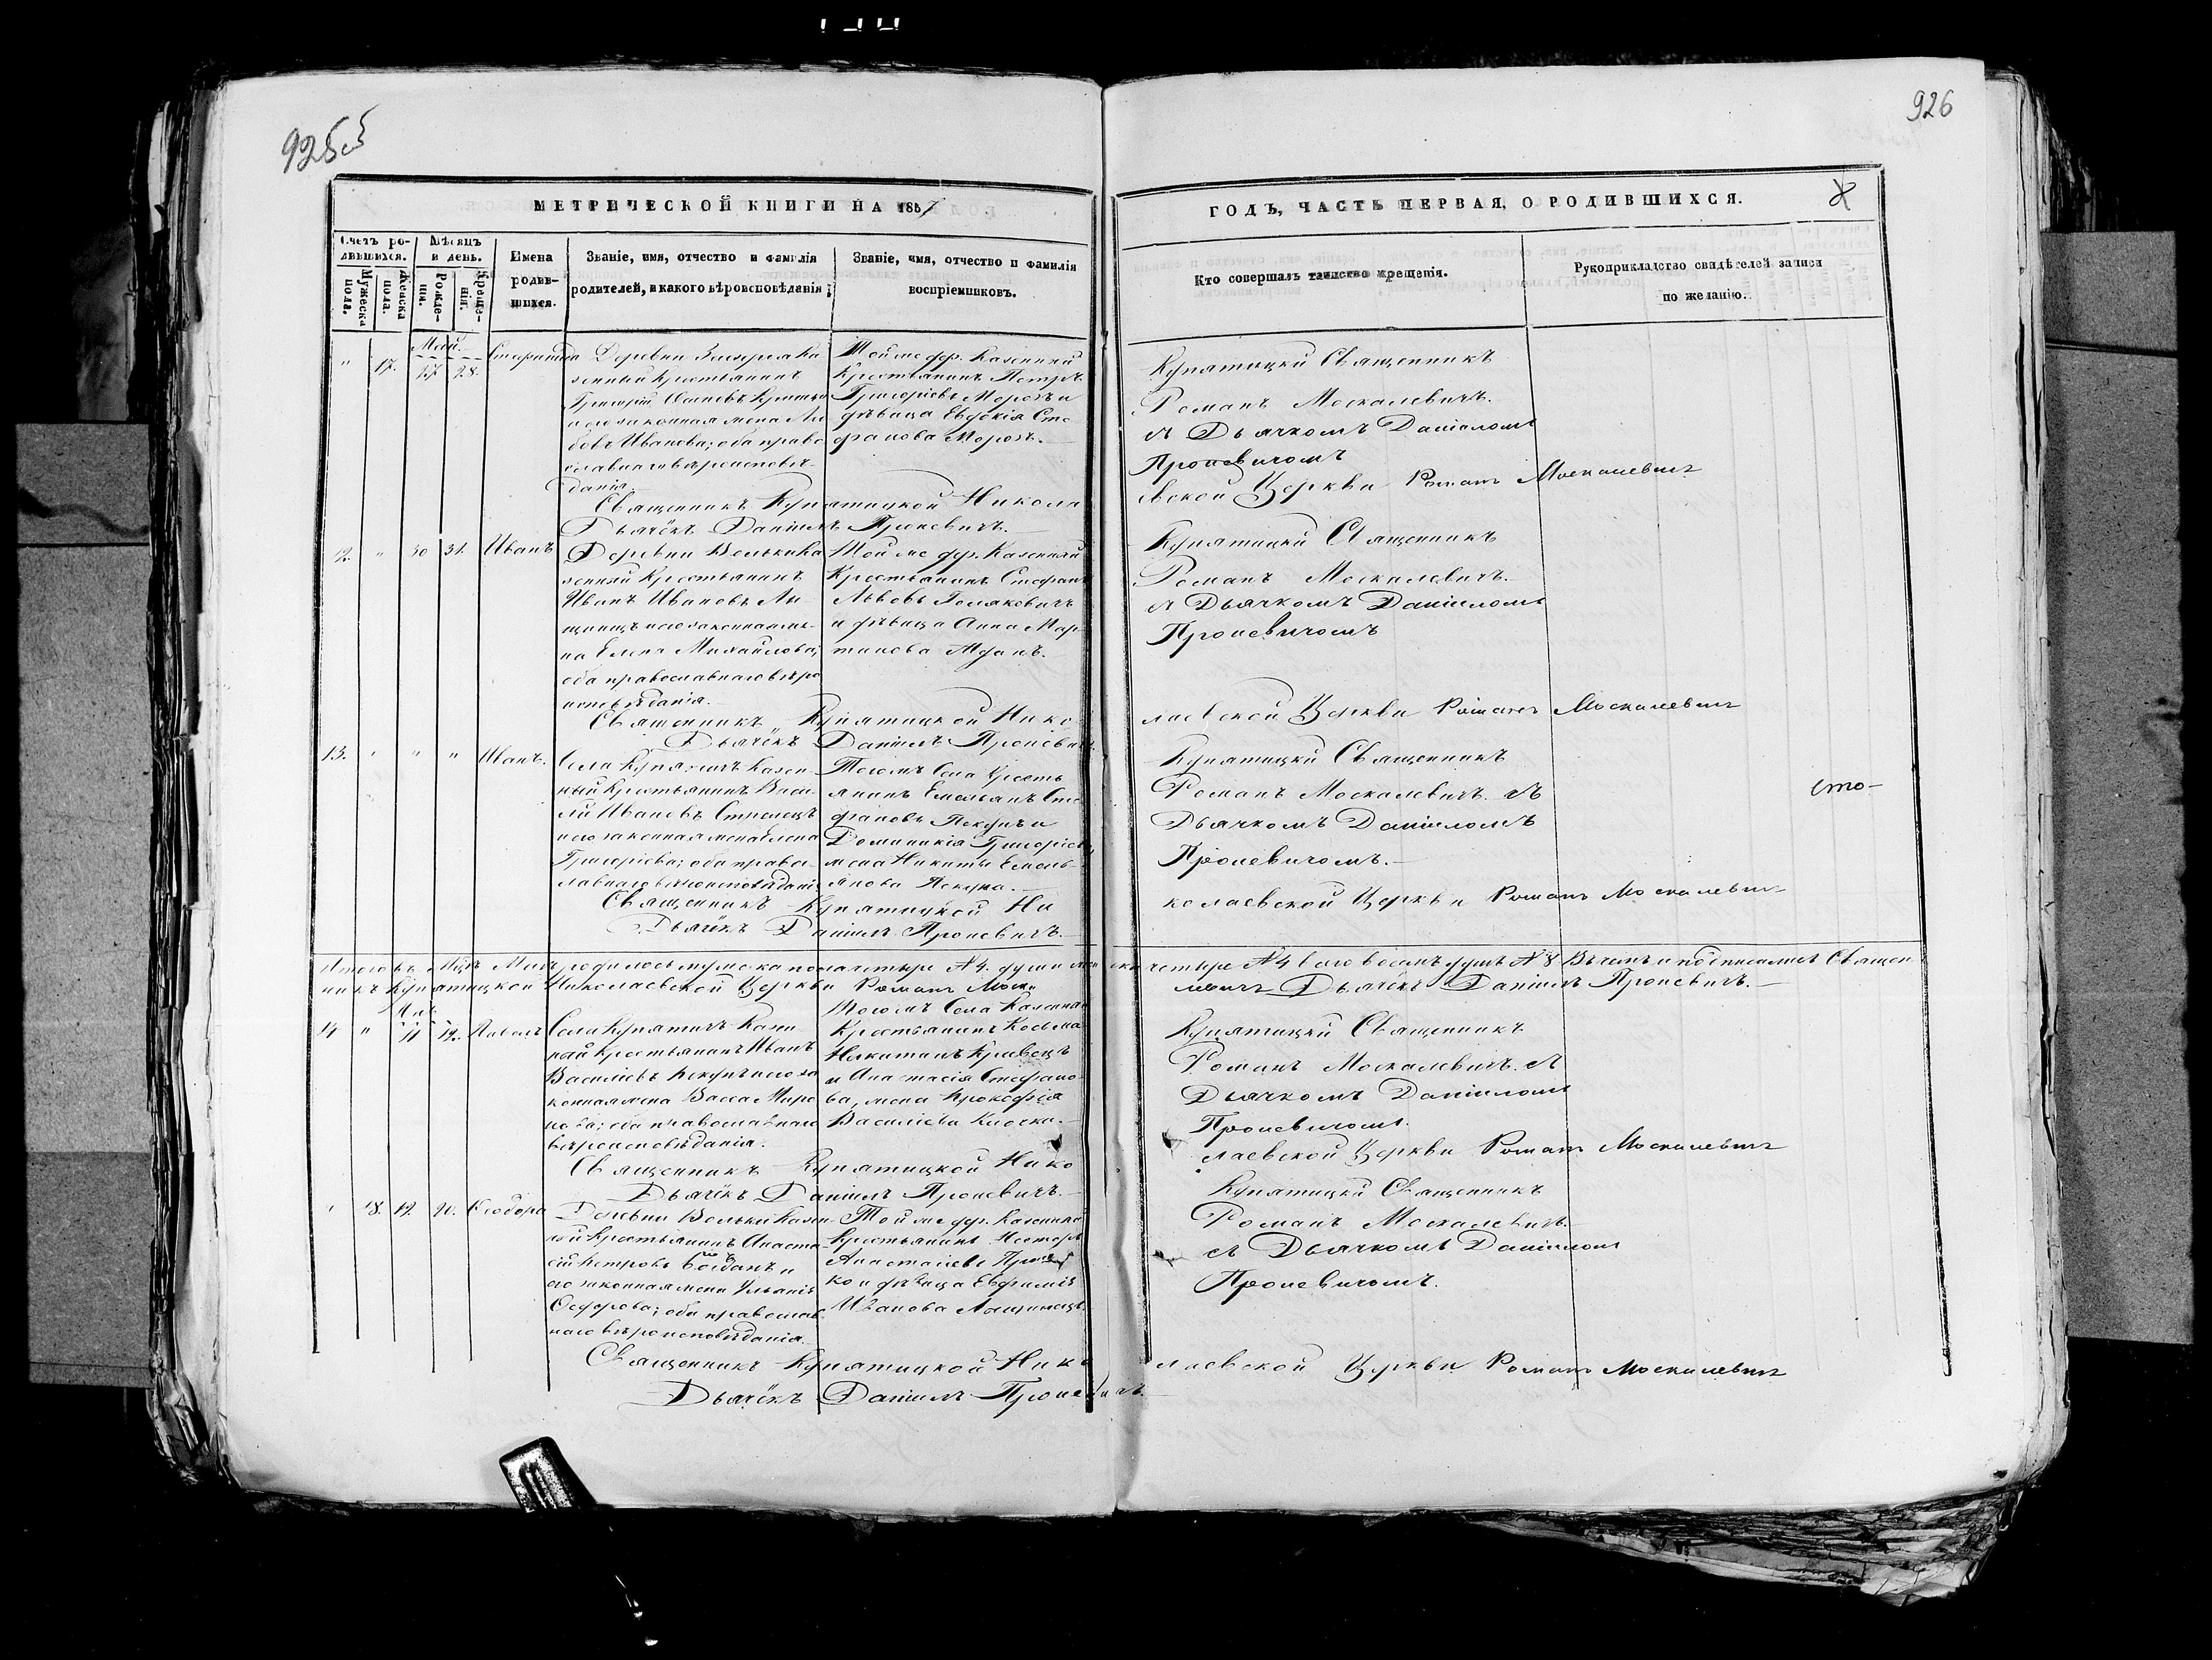 926
МЕТРИЧЕСКОЙ КНИГИ НА 1857
ГОДЪ, ЧАСТЬ ПЕРВАЯ, О РОДИВШИХСЯ.
Счетъ ро-
дившихся.
Мужеска
пола.
Женска
пола.
Мѣсяцъ
и день.
Рожде-
нія.
Креще-
нія.
Имена
родив-
шихся.
Званіе, имя, отчество и фамилія
родителей, и какого вѣроисповѣданія
Званіе, имя, отчество и фамилія
воспріемниковъ.
Кто совершалъ таинство крещенія.
Рукоприкладство свидѣтелей записи
по желанію.
Май.
" 17. 27 28.
Деревни
зенный Крестьянинъ
Григорій
и его законная жена Лю
бовь Иванова; оба право
славнаго вѣроисповѣ-
данія.
Той же дер. Казенный
Крестьянинъ Петръ
Григоріевъ Морозъ и
дѣвица Евдокія Сте
фанова Морозъ.
Купятицкій Священникъ
Романъ Москалевичъ.
съ Дьячкомъ Даніиломъ
Пропевичомъ
Священникъ Купятицкой Никола
евской Церкви Романъ Москалевичъ
Дьячёкъ Даніилъ Пропевичъ.
12. " 30 31. Иванъ
Деревни Волькика
зенный Крестьянинъ
Иванъ Ивановъ Ли
щинецъ и его законная же-
на Елена Михайлова;
оба православнаго вѣро
исповѣданія.
Той же дер. Казенный
Крестьянинъ Стефанъ
Львовъ
и дѣвица Анна Мар
тинова
Купятицкій Священникъ
Романъ Москалевичъ.
съ Дьячкомъ Даніиломъ
Пропевичомъ
Священникъ Купятицкой Нико
лаевской Церкви Романъ Москалевичъ
Дьячёкъ Даніилъ Пропевичъ.
13. " " " Иванъ.
Села Купятичъ Казен-
ный Крестьянинъ Васи-
лій Ивановъ Стрелецъ
и его законная жена Елена
Григоріева; оба правос-
лавнаго вѣроисповѣданія
Тогожъ Села Кресть
янинъ Емельянъ Сте
фановъ Пекунъ и
Домникія Григоріева
жена Никиты Емель-
янова Пекуна.
Купятицкій Священникъ
Романъ Москалевичъ. съ
Дьячкомъ Даніиломъ
Пропевичомъ.
сто-
Священникъ Купятицкой Ни
колаевской Церкви Романъ Москалевичъ
Дьячёкъ Даніилъ Пропевичъ.
Итого въ Мцѣ Маѣ родилось мужеска пола четыре № 4. души женска четыре № 4 всего восемь душъ № 8 Въ чемъ и подписались Священ
никъ Купятицкой Николаевской Церкви Романъ Москалевичъ Дьячёкъ Даніилъ Пропевичъ.
14 " 11 12. Павелъ
Села Купятичъ Казен
ный Крестьянинъ Иванъ
Василіевъ Пекунъ и его за
конная жена Васса Миро
нова; оба православнаго
вѣроисповѣданія.
Тогожъ Села Казенный
Крестьянинъ Косьма
Никитинъ Кравецъ
и Анастасія Стефано
ва, жена Прокофія
Василіева
Купятицкій Священникъ
Романъ Москалевичъ. съ
Дьячкомъ Даніиломъ
Пропевичомъ.
Священникъ Купятицкой Нико
лаевской Церкви Романъ Москалевичъ
Дьячёкъ Даніилъ Пропевичъ.
" 18. 19. 20. Ѳеодора
Деревни Вольки Казен-
ый Крестьянинъ Анаста
сій Петровъ Богданъ и
его законная жена Ульянія
Ѳедорова; оба православ
наго вѣроисповѣданія.
Той же дер. Казенный
Крестьянинъ Несторъ
Анастасіевъ
ко и дѣвица Евфимія
Иванова Лащинецъ.
Купятицкій Священникъ
Романъ Москалевичъ.
съ Дьячкомъ Даніиломъ
Пропевичомъ.
Священникъ Купятицкой Нико
лаевской Церкви Романъ Москалевичъ
Дьячёкъ Даніилъ Пропевичъ.